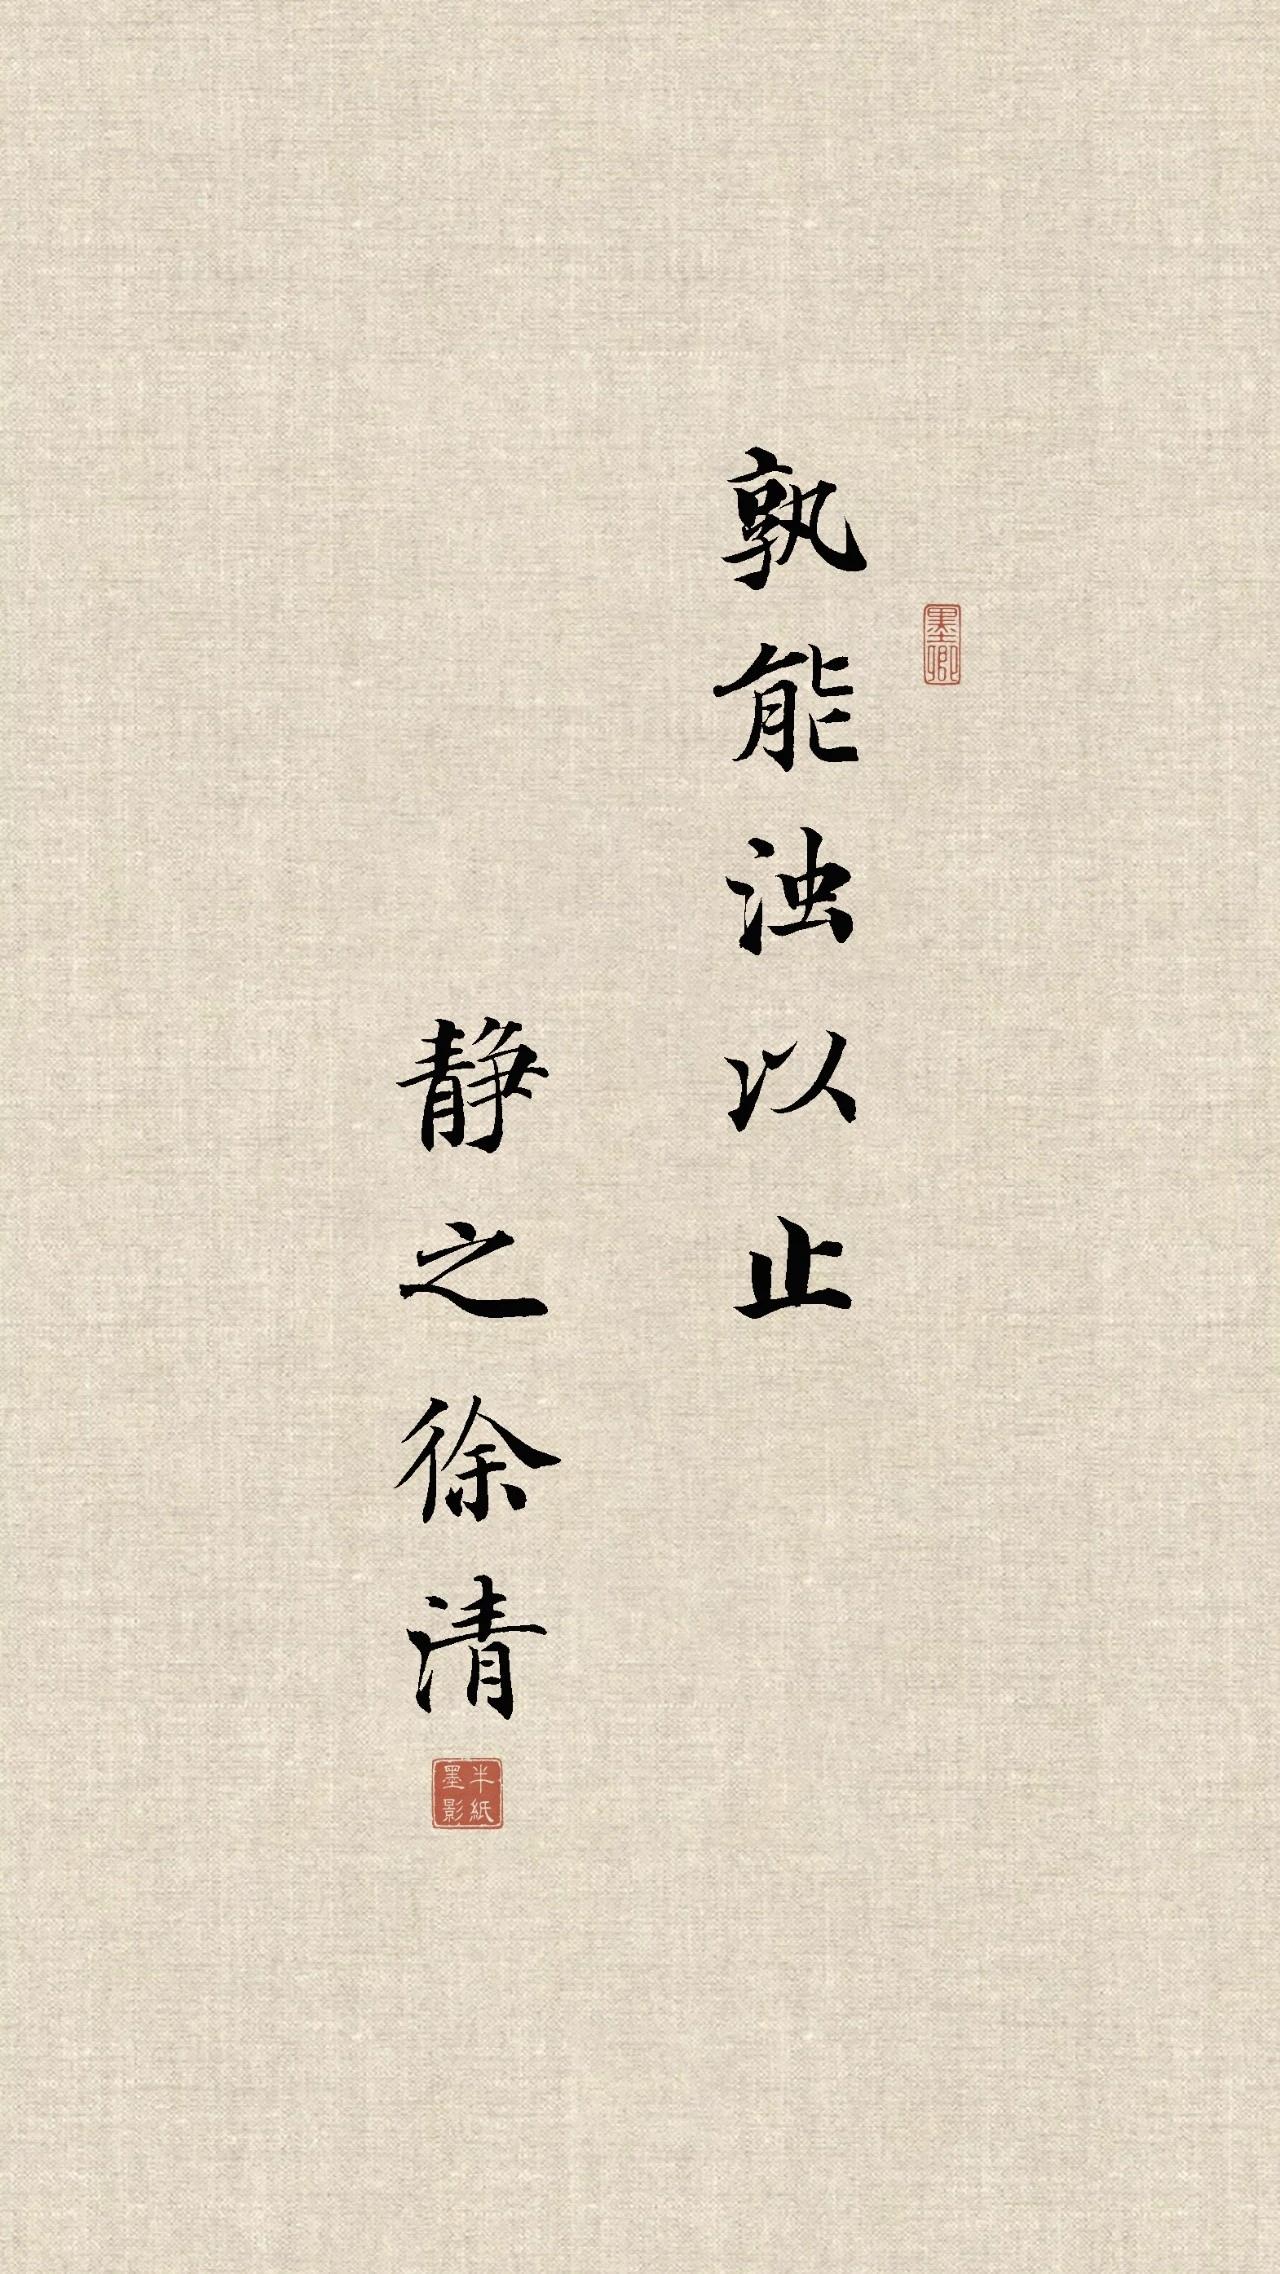 孰能浊以止
静之徐清
墨卿
半紙
墨影